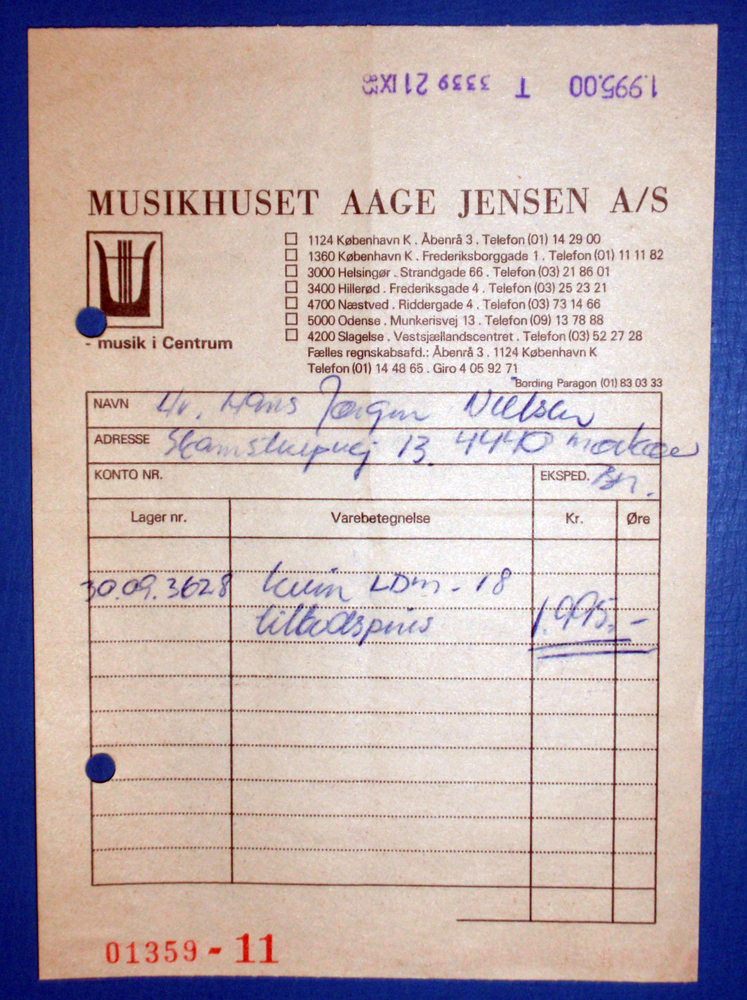 1.995.00 T 3339 21 IX 83
MUSIKHUSET AAGE JENSEN A/S
1124 København K . Åbenrå 3 . Telefon (01) 14 29 00
1360 København K . Frederiksborggade 1 . Telefon (01) 11 11 82
3000 Helsingør . Strandgade 66 . Telefon (03) 21 86 01
3400 Hillerød . Frederiksgade 4 . Telefon (03) 25 23 21
4700 Næstved . Riddergade 4 . Telefon (03) 73 14 66
5000 Odense . Munkerisvej 13 . Telefon (09) 13 78 88
4200 Slagelse . Vestsjællandscentret . Telefon (03) 52 27 28
Fælles regnskabsafd.: Åbenrå 3 . 1124 København K
Telefon (01) 14 48 65 . Giro 4 05 92 71
- musik i Centrum
Bording Paragon (01) 83 03 33
NAVN Hr. Hans Jørgen Nielsen
ADRESSE 13. 4440 Mørkøv
KONTO NR. EKSPED.
Lager nr. Varebetegnelse Kr. Øre
30.09.3628 LDM-18
tilbudspris 1.995.-
01359 - 11